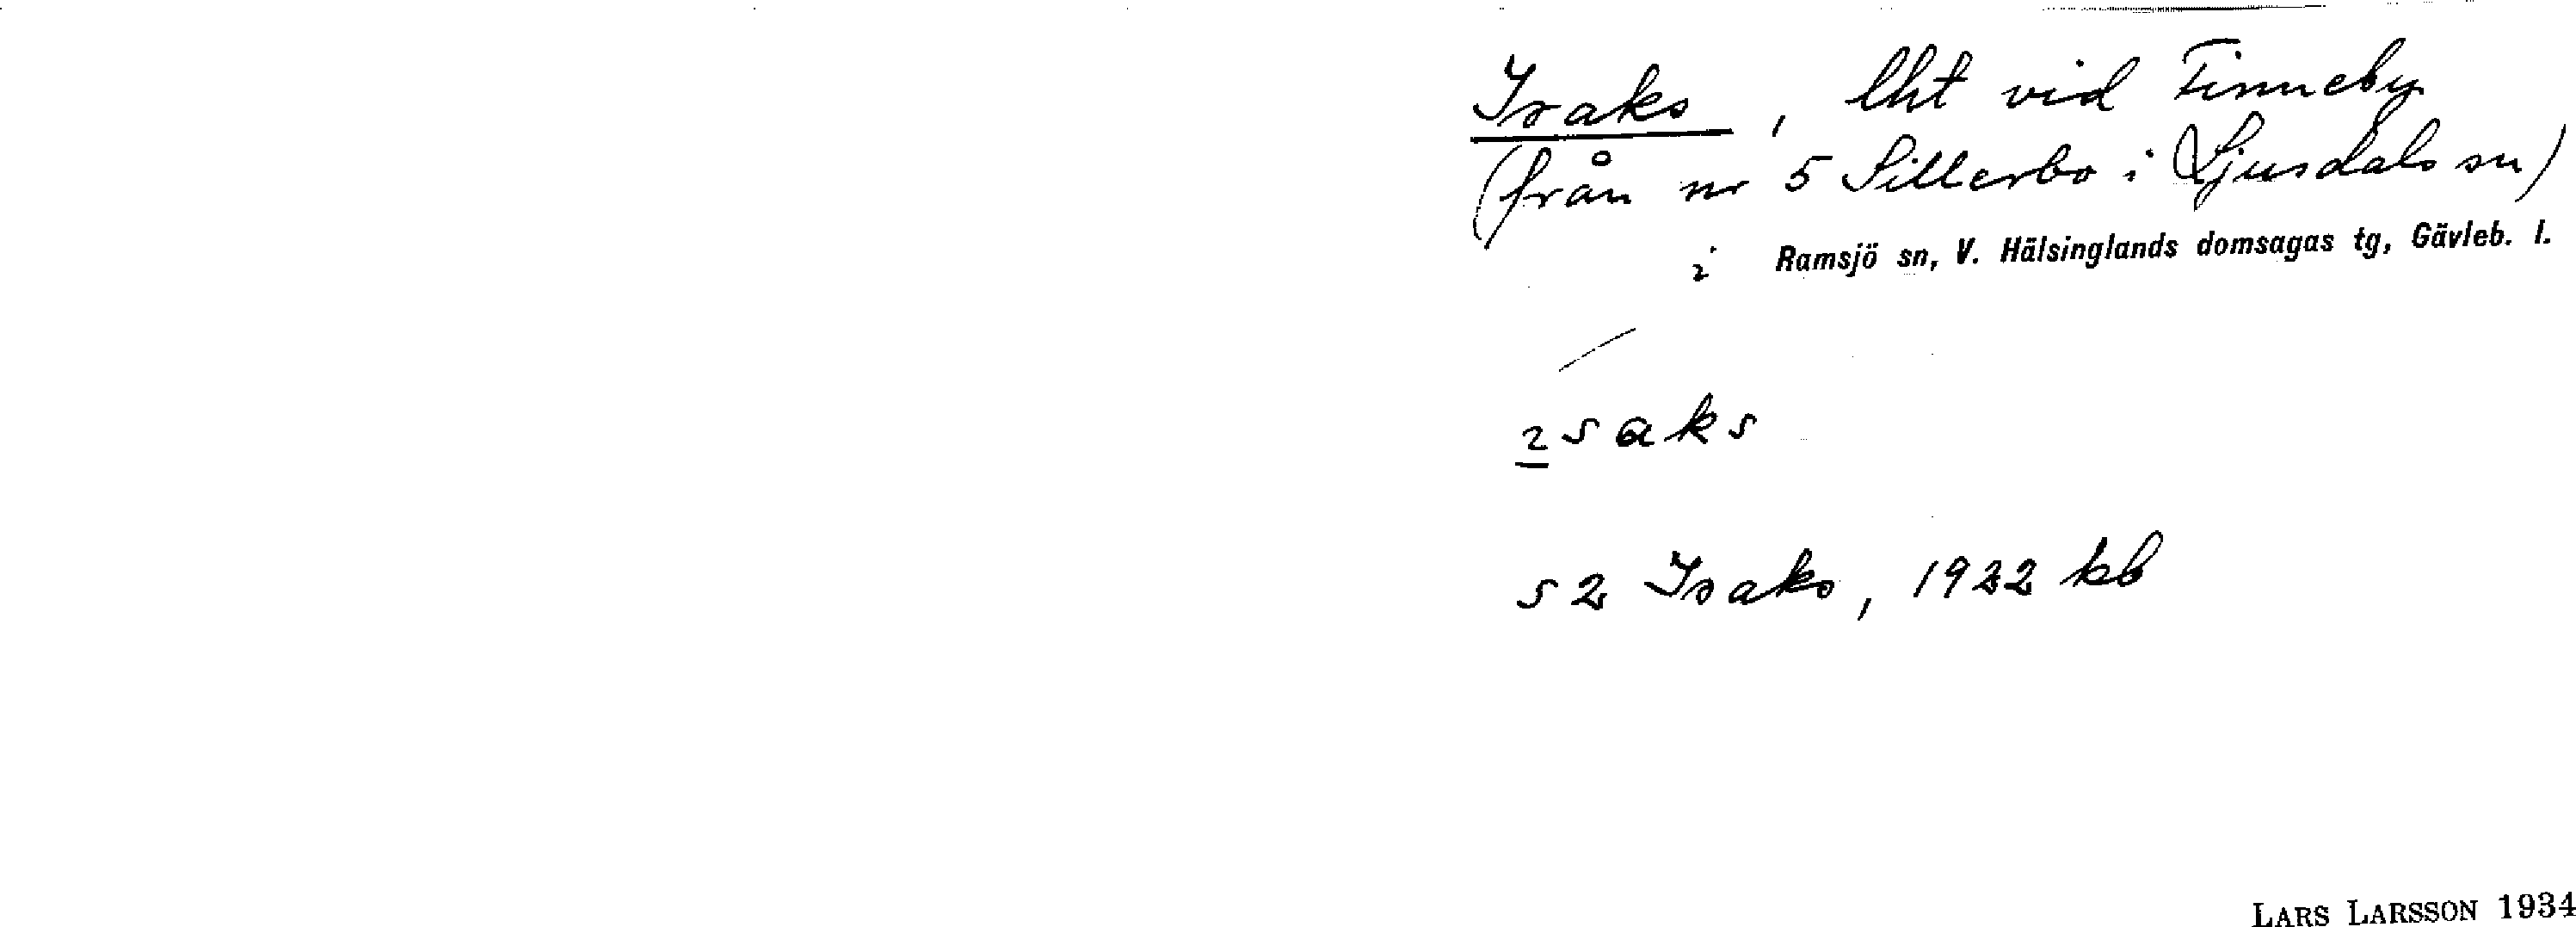 Isaks, lht vid Finneby
(från nr 5 Sillerbo i Ljusdals sn)
i Ramsjö sn, V. Hälsinglands domsagas tg, Gävleb. l.
isaks
s 2 Isaks, 1922 kb
LARS LARSSON 1934